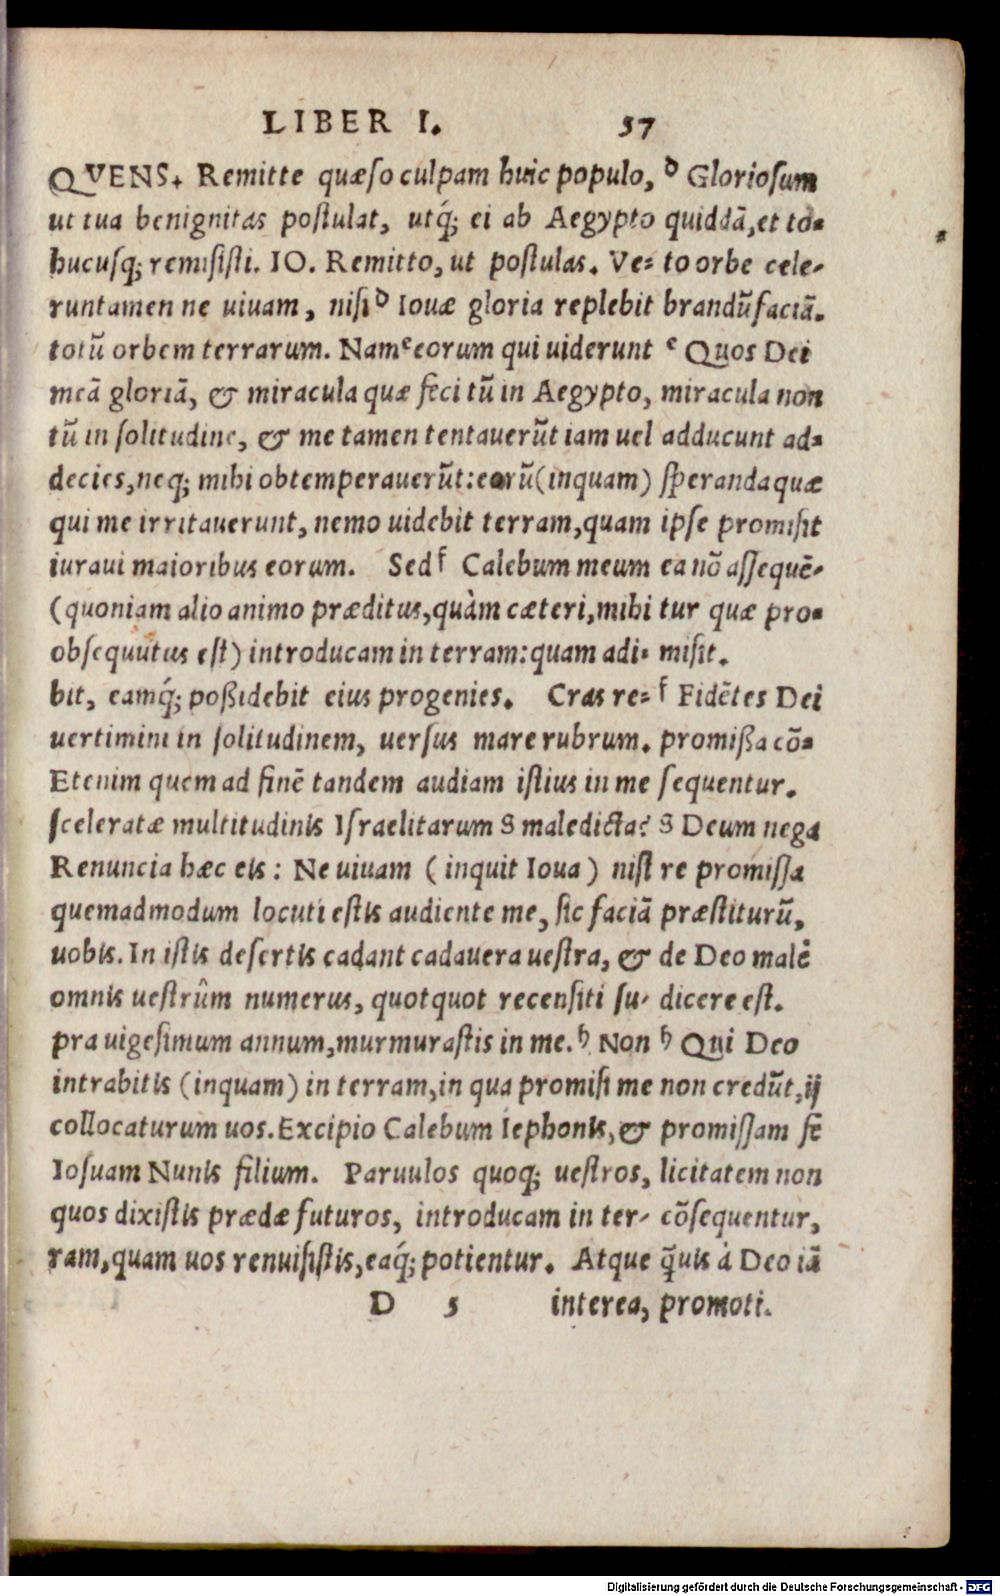 LIBER I. 57
QVENS. Remitte quæso culpam huic populo,
ut tua benignitas postulat, utq́; ei ab Aegypto
hucusq; remisisti. IO. Remitto, ut postulas. Ve=
runtamen ne uivam, nisi ᵈ Iouæ gloria replebit
totū orbem terrarum. Nam ᵉ eorum qui uiderunt
meā gloriā, & miracula quæ feci tū in Aegypto,
tū in solitudine, & me tamen tentauerūt iam uel
decies, neq; mihi obtemperauerūt: eorū (inquam)
qui me irritauerunt, nemo uidebit terram, quam
iuraui maioribus eorum. Sed ᶠ Calebum meum
(quoniam alio animo præditus, quàm cæteri, mihi
obsequutus est) introducam in terram: quam adi=
bit, eamq́; poßidebit eius progenies. Cras re=
uertimini in solitudinem, uersus mare rubrum.
Etenim quem ad finē tandem audiam istius in me
sceleratæ multitudinis Israelitarum ᵍ maledicta?
Renuncia hæc eis: Ne uiuam (inquit Ioua) nisi
quemadmodum locuti estis audiente me, sic faciā
uobis. In istis desertis cadant cadauera uestra, &
omnis uestrûm numerus, quotquot recensiti su=
pra uigesimum annum, murmurastis in me. ʰ Non
intrabitis (inquam) in terram, in qua promisi me
collocaturum uos. Excipio Calebum Iephonis, &
Iosuam Nunis filium. Paruulos quoq; uestros,
quos dixistis prædæ futuros, introducam in ter=
ram, quam uos renuisistis, eaq́; potientur. Atque
D 5 interea,
ᵈ Gloriosum
quiddā, et to=
to orbe cele=
brandū faciā.
ᵉ Quos Dei
miracula non
adducunt ad
speranda quæ
ipse promisit
ea nō assequē=
tur quæ pro=
misit.
ᶠ Fidētes Dei
promißa cō=
sequentur.
ᵍ Deum nega
re promissa
præstiturū,
de Deo malè
dicere est.
ʰ Qui Deo
non credūt, ij
promissam fe
licitatem non
cōsequentur,
q̃uis à Deo iā
promoti.
Digitalisierung gefördert durch die Deutsche Forschungsgemeinschaft - DFG